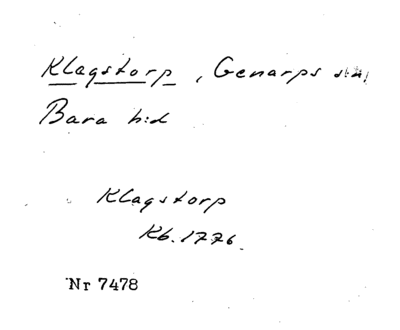 Klagstorp, Genarps sn,
Bara hd
Klagstorp
Kb. 1776.
Nr 7478